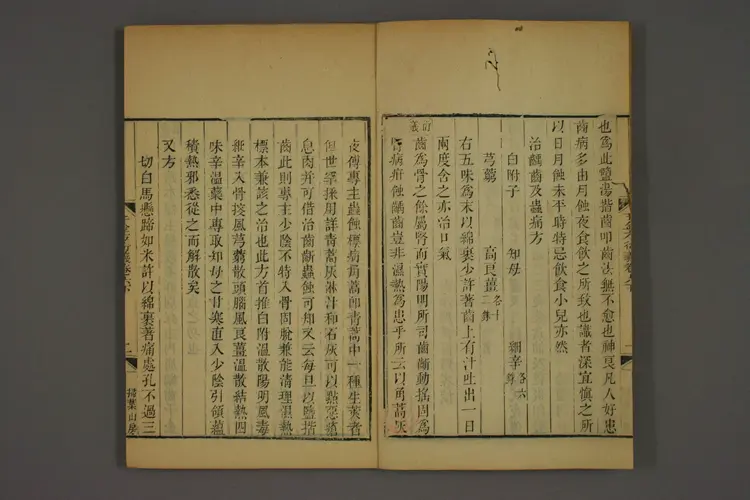 也爲此鹽湯揩齒叩齒法無不愈也神良凡人好患
齒病多由月蝕夜食飲之所致也識者深宜慎之所
以日月蝕未平時特忌飲食小兒亦然
治齲齒及蟲痛方
白附子 知母 細辛各六銖
芎藭 高良薑各十二銖
右五味爲末以綿裹少許著齒上有汁吐出一日
兩度含之亦治口氣
衍義
齒爲骨之餘屬腎而實陽明所司齒齗動搖固爲
腎病疳蝕齲齒豈非溫熱爲患乎所云以角蒿灰
傅專主蟲蝕標病角蒿卽青蒿中一種生莢者
但世罕採用詳青蒿灰淋汁和石灰可以熬惡瘡
息肉并可借治齒齗蟲蝕可知又云每旦以鹽揩
齒此則專主少陰不特入骨固脫兼能清理濕熱
標本兼該之治也此方首推白附溫散陽明風毒
細辛入骨搜風芎藭散頭腦風良薑溫散結熱四
味辛溫藥中專取知母之甘寒直入少陰引領蘊
積熱邪悉從之而解散矣
又方
切白馬懸蹄如米許以綿裹著痛處孔不過三
二
掃葉山房